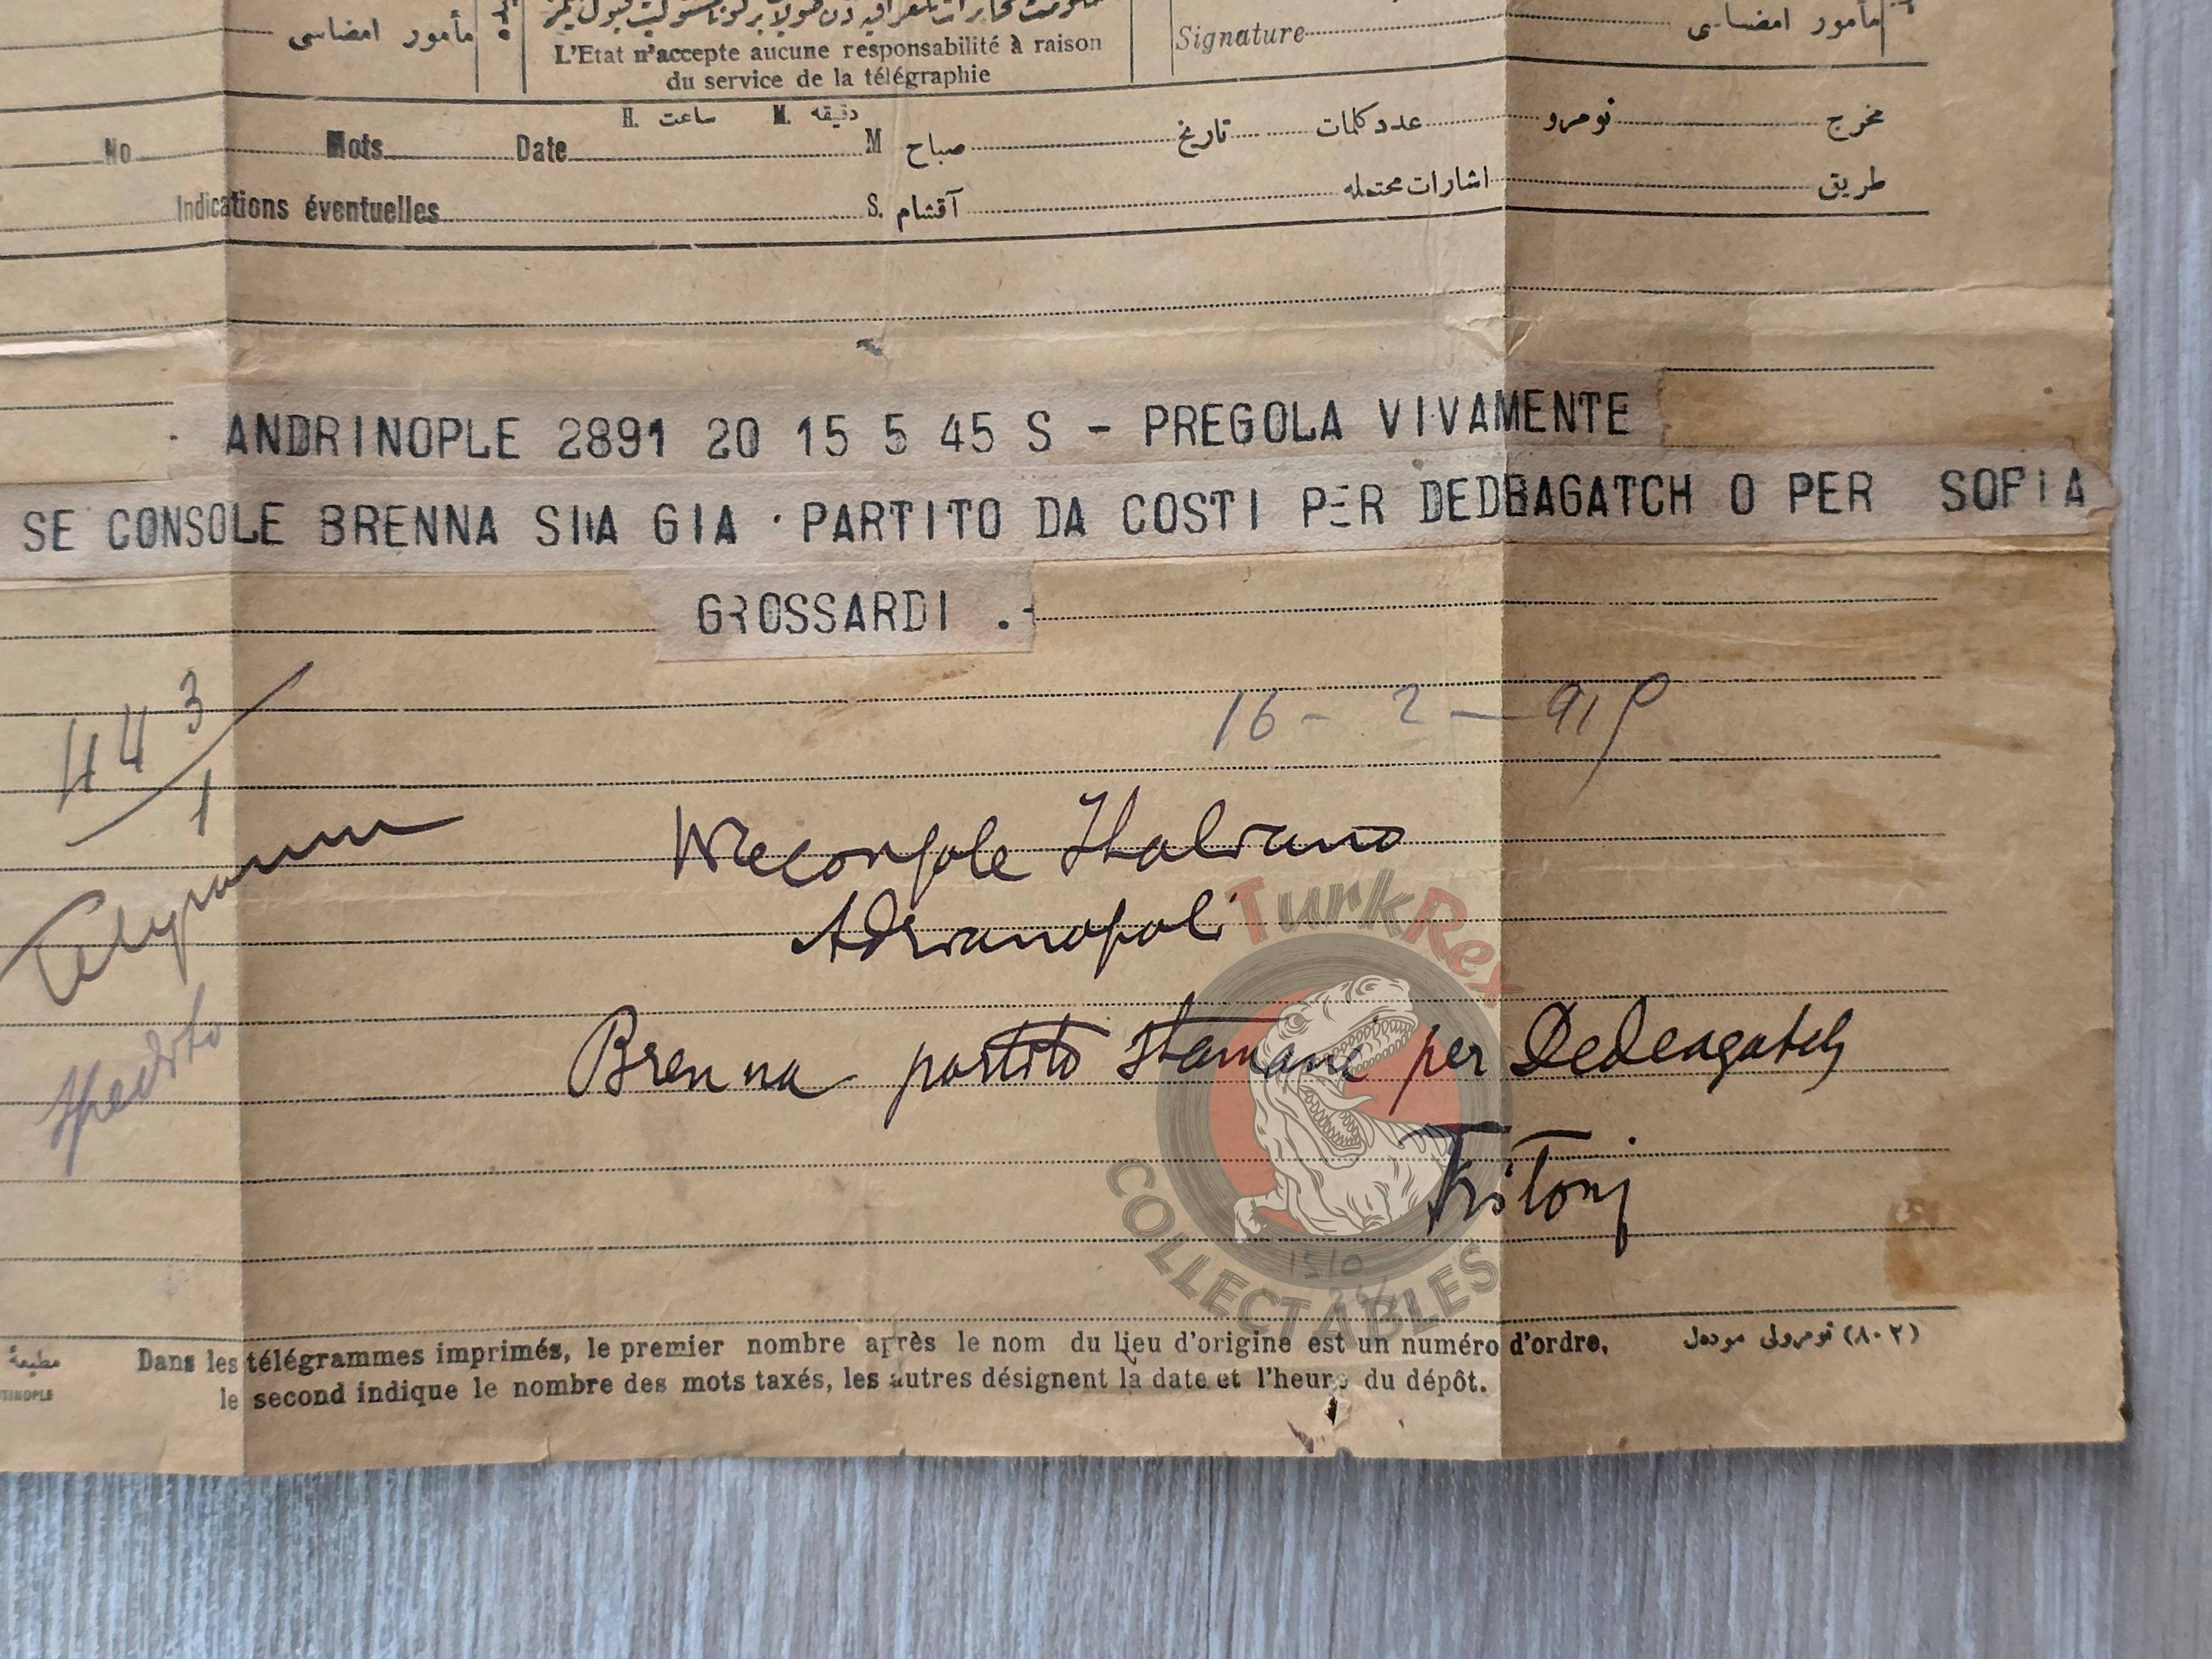 مأمور امضاسی
L'Etat n'accepte aucune responsabilité à raison
du service de la télégraphie
Signature
مأمور امضاسی
H. ساعت M. دقیقه
No Mots Date M صباح تاریخ عدد کلمات نومرو مخرج
Indications éventuelles S. آقشام اشارات محتمله طریق
ANDRINOPLE 2891 20 15 5 45 S - PREGOLA VIVAMENTE
SE CONSOLE BRENNA SIIA GIA · PARTITO DA COSTI PER DEDBAGATCH O PER SOFIA
GROSSARDI .-
443/1
16 - 2 - 919
Telegramma
Viceconsole Italiano
Adrianopoli
Spedito
Brenna partito stamane per Dedeagatch
TurkRex
COLLECTABLES
Dans les télégrammes imprimés, le premier nombre après le nom du lieu d'origine est un numéro d'ordre,
le second indique le nombre des mots taxés, les autres désignent la date et l'heure du dépôt.
(٨٠٢) نومرولی مودەل
مطبعهٔ